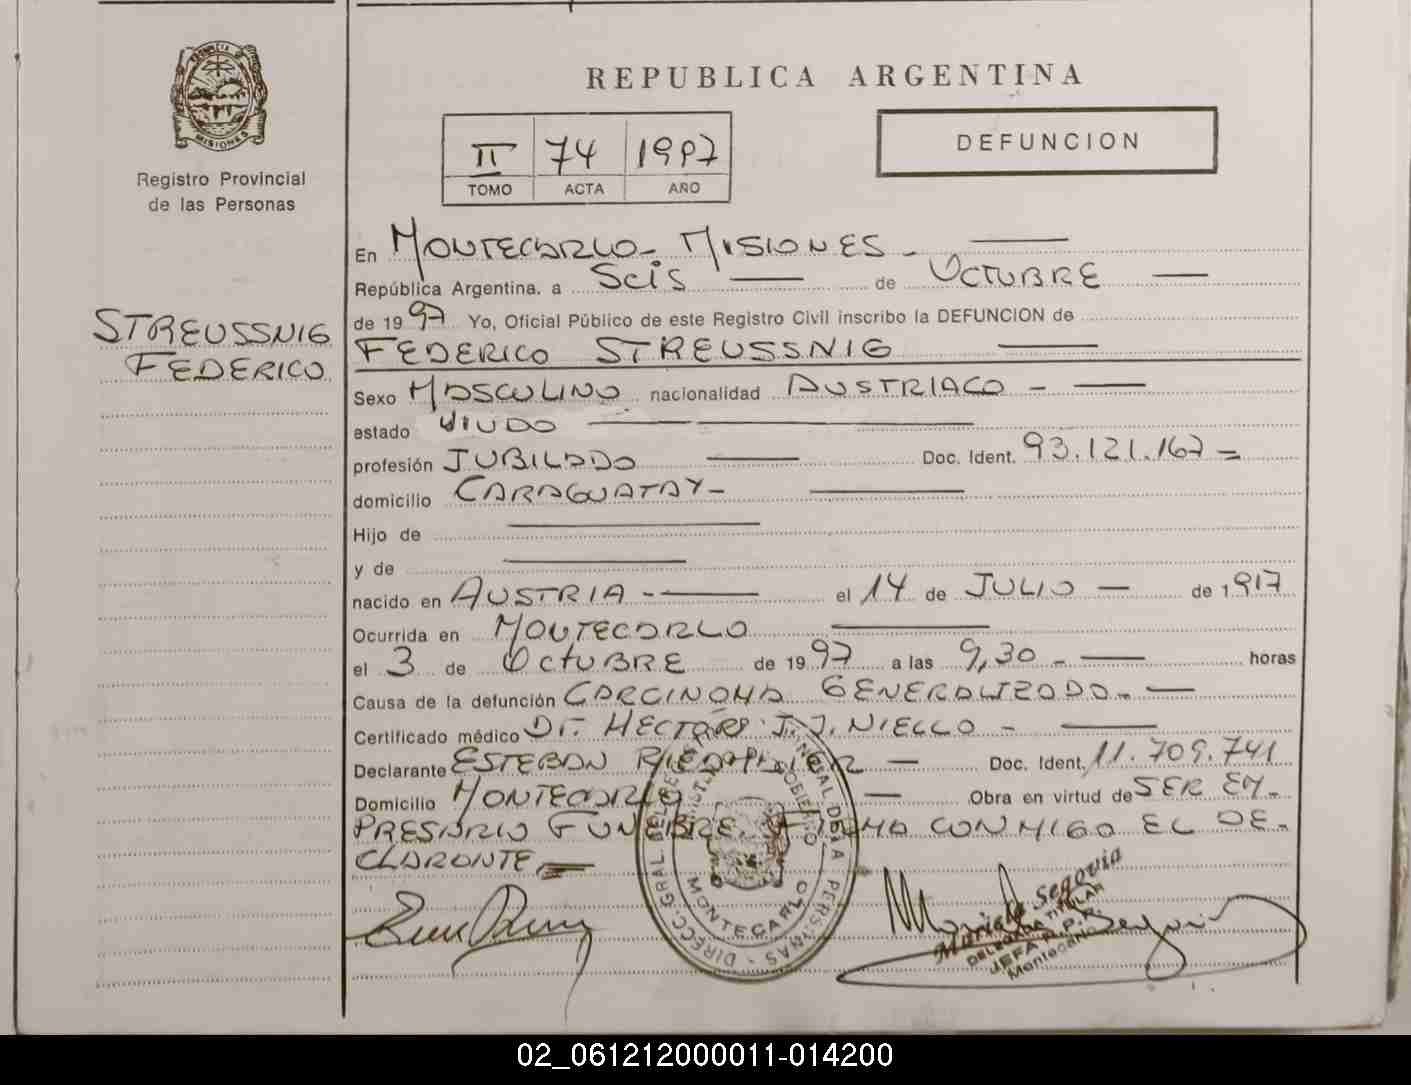 PROVINCIA DE
MISIONES
Registro Provincial
de las Personas
STREUSSNIG
FEDERICO
REPUBLICA ARGENTINA
II 74 1997
TOMO ACTA AÑO
DEFUNCION
En MONTECARLO - MISIONES -
República Argentina, a Seis de OCTUBRE
de 1997 Yo, Oficial Público de este Registro Civil inscribo la DEFUNCION de
FEDERICO STREUSSNIG
Sexo MASCULINO nacionalidad AUSTRIACO -
estado VIUDO
profesión JUBILADO Doc. Ident. 93.121.167 =
domicilio CARAGUATAY -
Hijo de
y de
nacido en AUSTRIA - el 14 de JULIO de 1917
Ocurrida en MONTECARLO
el 3 de OCTUBRE de 1997 a las 9,30 - horas
Causa de la defunción CARCINOMA GENERALIZADO. -
Certificado médico Dr. HECTOR J. J. NIELLO -
Declarante ESTEBAN Doc. Ident. 11.709.741
Domicilio MONTECARLO Obra en virtud de SER EM-
PRESARIO FUNEBRE. FIRMA CONMIGO EL DE-
CLARANTE
DIRECC. GRAL DEL REGIST. PROVINCIAL DE LA PERSONAS -
MONTECARLO
Mariela Segovia
DELEGADA TITULAR
JEFA R.P.P.
Montecarlo
02_061212000011-014200